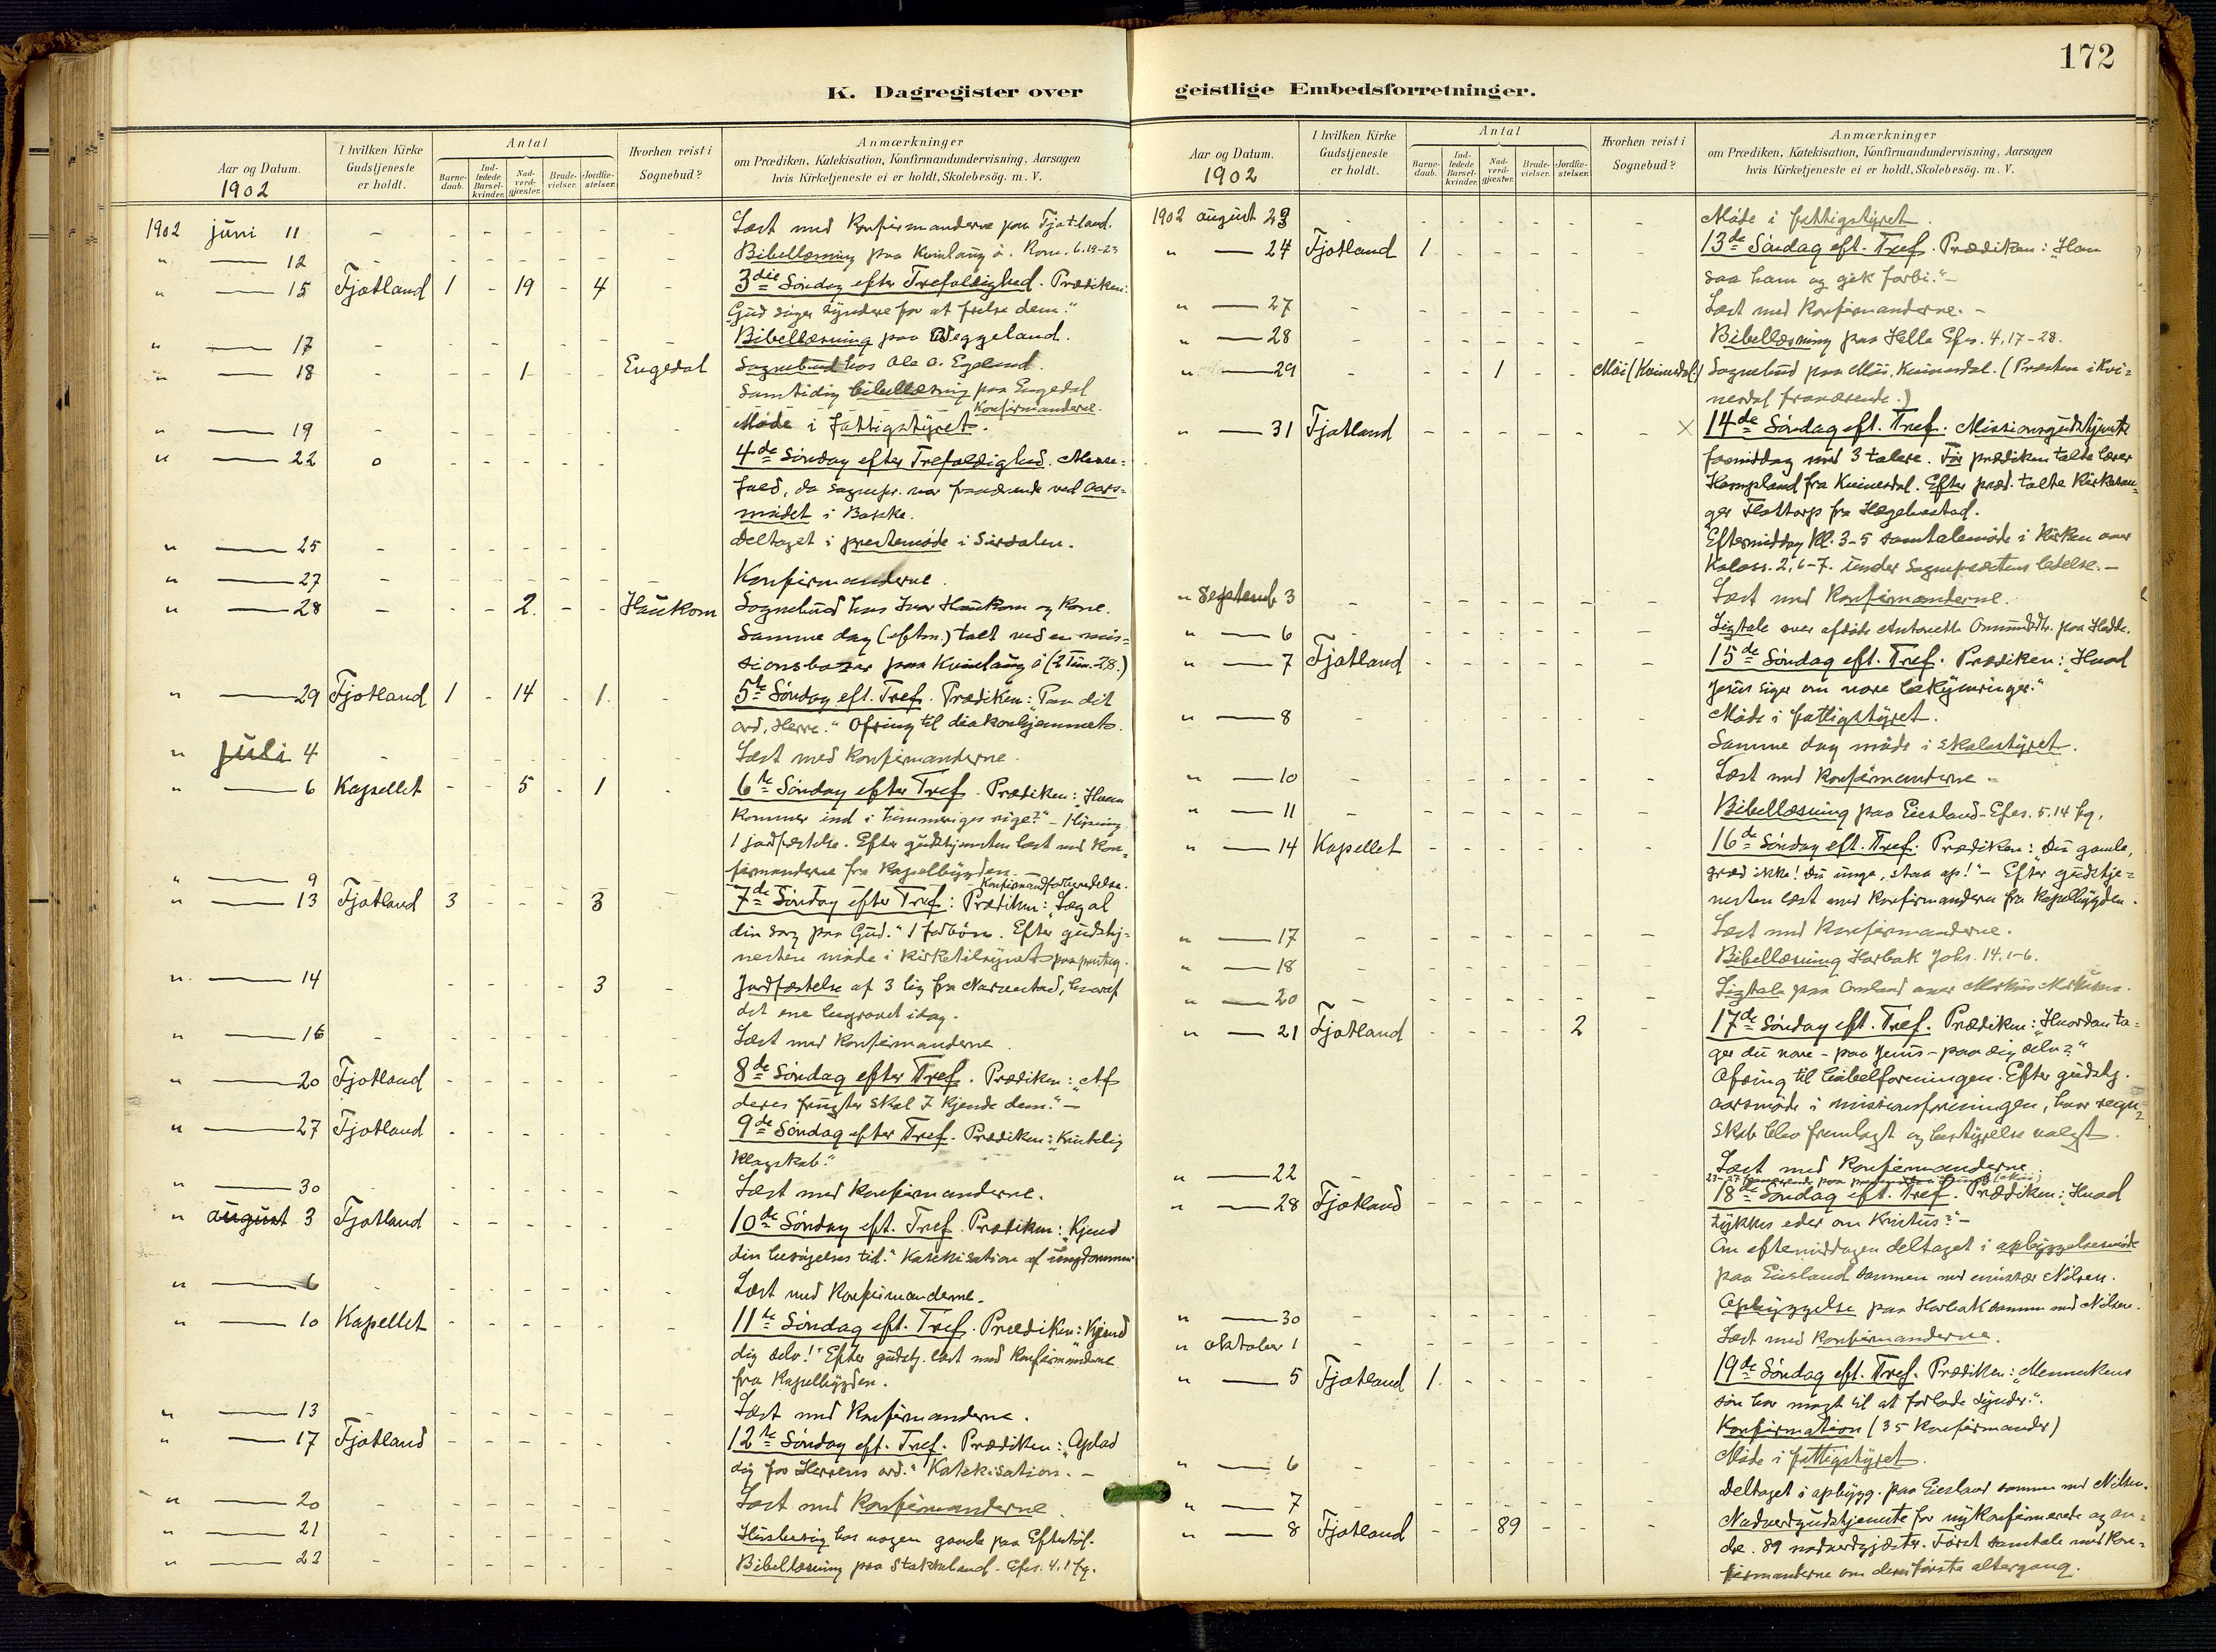 172
K. Dagregister over geistlige Embedsforretninger.
Aar og Datum. 1902
I hvilken Kirke Gudstjeneste er holdt.
Antal
Barnedaab.
Indledede Barselkvinder.
Nadverdgjæster.
Brudevielser.
Jordfæstelser.
Hvorhen reist i Sognebud?
Anmærkninger
om Prædiken, Katekisation, Konfirmandundervisning, Aarsagen
hvis Kirketjeneste ei er holdt, Skolebesøg. m. V.
1902 juni 11 - - - - - - - Læst med Konfirmanderne paa Fjotland.
" — 12 - - - - - - - Bibellæsning paa Kvinlaug ö. Rom. 6.19-23
" — 15 Fjotland 1 - 19 - 4 - 3die Söndag efter Trefoldighed. Prædiken:
"Gud søger syndere for at frelse dem."
" — 17 - - - - - - - Bibellæsning paa Veggeland.
" — 18 - - 1 - - Engedal Sognebud hos Ole O. Egeland.
Samtidig bibellæsning paa Engedal
Konfirmanderne.
" — 19 - - - - - - - Møde i fattigstyret.
" — 22 o - - - - - 4de Søndag efter Trefoldighed. Messe=
fald, da sognepr. var fraværende ved aars=
mødet i Bakke.
" — 25 - - - - - - Deltaget i prestemøde i Sirdalen.
" — 27 - - - - - - - Konfirmanderne.
" — 28 - - - 2. - - Haukom Sognebud hos Ivar Haukom og Kone.
Samme dag (eftm.) talt ved en mis=
sionsbasar paa Kvinlaug ö (2 Tim. 2.8.)
" — 29 Fjotland 1 - 14 - 1. - 5te Søndag eft. Tref. Prædiken: "Paa dit
ord, Herre." Ofring til diakonhjemmet.
" juli 4 - - - - - - Læst med Konfirmanderne.
" — 6 Kapellet - - 5 - 1 - 6te Søndag efter Tref. Prædiken: "Hvem
kommer ind i himmeriges rige?" -
1 jordfæstelse. Efter gudstjenesten læst med Kon=
firmanderne fra Kapelbygden.
" — 9 - - - - - - Konfirmandforberedelse.
" — 13 Fjotland 3 - - - 3 - 7de Søndag efter Tref: Prædiken: "Læg al
din sorg paa Gud." 1 Efter gudstj=
nesten møde i kirketilsynet
" — 14 - - - - 3 - Jordfæstelse af 3 lig fra Narvestad, hvoraf
det ene begravet idag.
" — 16 - - - - - - - Læst med Konfirmanderne.
" — 20 Fjotland - - - - - - 8de Søndag efter Tref. Prædiken: "Af
deres frugter skal I kjende dem." -
" — 27 Fjotland - - - - - - 9de Søndag efter Tref. Prædiken: "Kristelig
klogskab."
" — 30 - - - - - - - Læst med Konfirmanderne.
" august 3 Fjotland - - - - - - 10de Søndag eft. Tref. Prædiken: "Kjend
din besøgelses tid." Katekisation af ungdommen
" — 6 - - - - - - - Læst med Konfirmanderne.
" — 10 Kapellet - - - - - - 11te Søndag eft. Tref. Prædiken: "Kjend
dig selv!" Efter gudstj. læst med Konfirmanderne
fra Kapelbygden.
" — 13 - - - - - - - Læst med Konfirmanderne.
" — 17 Fjotland - - - - - - 12te Søndag eft. Tref. Prædiken: "Oplad
dig for Herrens ord." Katekisation. -
" — 20 - - - - - - - Læst med Konfirmanderne.
" — 21 - - - - - - - Husbesøg hos nogen gamle paa Eftestöl.
" — 22 - - - - - - - Bibellæsning paa Stakkeland. Efes. 4.1 fg.
1902 august 23 - - - - - - - Møde i fattigstyret.
" — 24 Fjotland 1 - - - - - 13de Søndag eft. Tref. Prædiken: "Han
saa ham og gik forbi." -
" — 27 - - - - - - - Læst med Konfirmanderne. -
" — 28 - - - - - - - Bibellæsning paa Helle Efes. 4, 17-28.
" — 29 - - - 1 - - Möi (Kvinesdal) Sognebud paa Möi, Kvinesdal. (Præsten i Kvi=
nesdal fraværende.)
" — 31 Fjotland - - - - - - × 14de Søndag eft. Tref. Missionsgudstjeneste
formiddag med 3 talere. Før prædiken talte lærer
fra Kvinesdal. Efter præd. talte Kirkesan=
ger Flottorp fra Hægebostad.
Eftermiddag Kl. 3-5 samtalemøde i Kirken over
Koloss. 2, 6-7. under Sognepræstens ledelse. -
" Septemb 3 - - - - - - - Læst med Konfirmanderne.
" — 6 - - - - - - - Ligtale over afdøde paa Hedde.
" — 7 Fjotland - - - - - - 15de Søndag eft. Tref. Prædiken: "Hvad
Jesus siger om vore bekymringer."
" — 8 - - - - - - - Møde i fattigstyret.
Samme dag møde i skolestyret.
" — 10 - - - - - - - Læst med Konfirmanderne -
" — 11 - - - - - - - Bibellæsning paa Eiesland - Efes. 5.14 fg.
" — 14 Kapellet - - - - - - 16de Søndag eft. Tref. Prædiken: "Du gamle,
græd ikke! Du unge, staa op!" - Efter gudstje=
nesten læst med Konfirmanderne fra Kapelbygden.
" — 17 - - - - - - - Læst med Konfirmanderne.
" — 18 - - - - - - - Bibellæsning Horbak Johs. 14.1-6.
" — 20 - - - - - - - Ligtale paa Omland over
" — 21 Fjotland - - - - 2 - 17de Søndag eft. Tref. Prædiken: "Hvordan ta=
ger du vare - paa Jesus - paa dig selv?"
Ofring til bibelforeningen. Efter gudstj.
aarsmøde i missionsforeningen, hvor regn=
skab blev fremlagt og bestyrelse valgt.
" — 22 - - - - - - - Læst med Konfirmanderne.
" — 28 Fjotland - - - - - - 18de Søndag eft. Tref. Prædiken: "Hvad
tykkes eder om Kristus?" -
Om eftermiddagen deltaget i opbyggelsesmøde
paa Eiesland sammen med Nilsen.
" — 30 - - - - - - - Opbyggelse paa Horbak sammen med Nilsen.
" oktober 1 - - - - - - - Læst med Konfirmanderne.
" — 5 Fjotland 1. - - - - - 19de Søndag eft. Tref. Prædiken: "Menneskens
søn har magt til at forlade synder."
Konfirmation (35 Konfirmander)
" — 6 - - - - - - - Møde i fattigstyret.
" — 7 - - - - - - - Deltaget i opbygg. paa Eiesland sammen med Nilsen.
" — 8 Fjotland - - 89 - - - Nadverdgudstjeneste for nykonfirmerede og an=
dre. 89 nadverdgjæster. Først samtale med Kon=
firmanderne om deres første altergang.